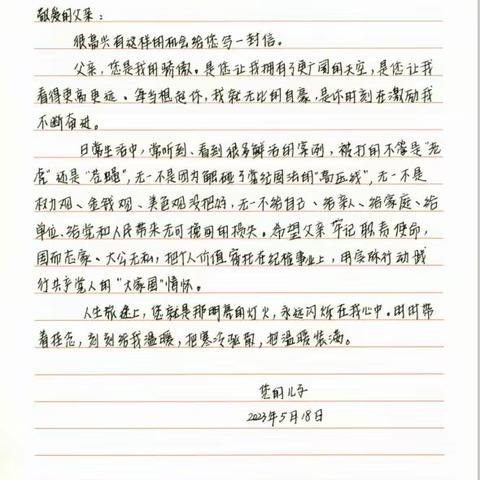 敬爱的父亲：
很高兴有这样的机会给您写一封信。
父亲，您是我的骄傲。是您让我拥有了更广阔的天空，是您让我
看得更高更远。每当想起你，我就无比的自豪，是你时刻在激励我
不断奋进。
日常生活中，常听到、看到很多鲜活的案例，被打的不管是“老
虎”还是“苍蝇”，无一不是因为触碰了党纪国法的“高压线”，无一不是
权力观、金钱观、美色观没把好，无一不给自己、给亲人、给家庭、给
单位、给党和人民带来无可挽回的损失。希望父亲牢记职责使命，
因而忘家、大公无私，把个人价值寄托在纪检事业上，用实际行动践
行共产党人的“大家国”情怀。
人生旅途上，您就是那明亮的灯火，永远闪烁在我心中。时时带
着挂念，刻刻给我温暖，把寒冷驱南，把温暖装满。
您的儿子
2023年5月18日